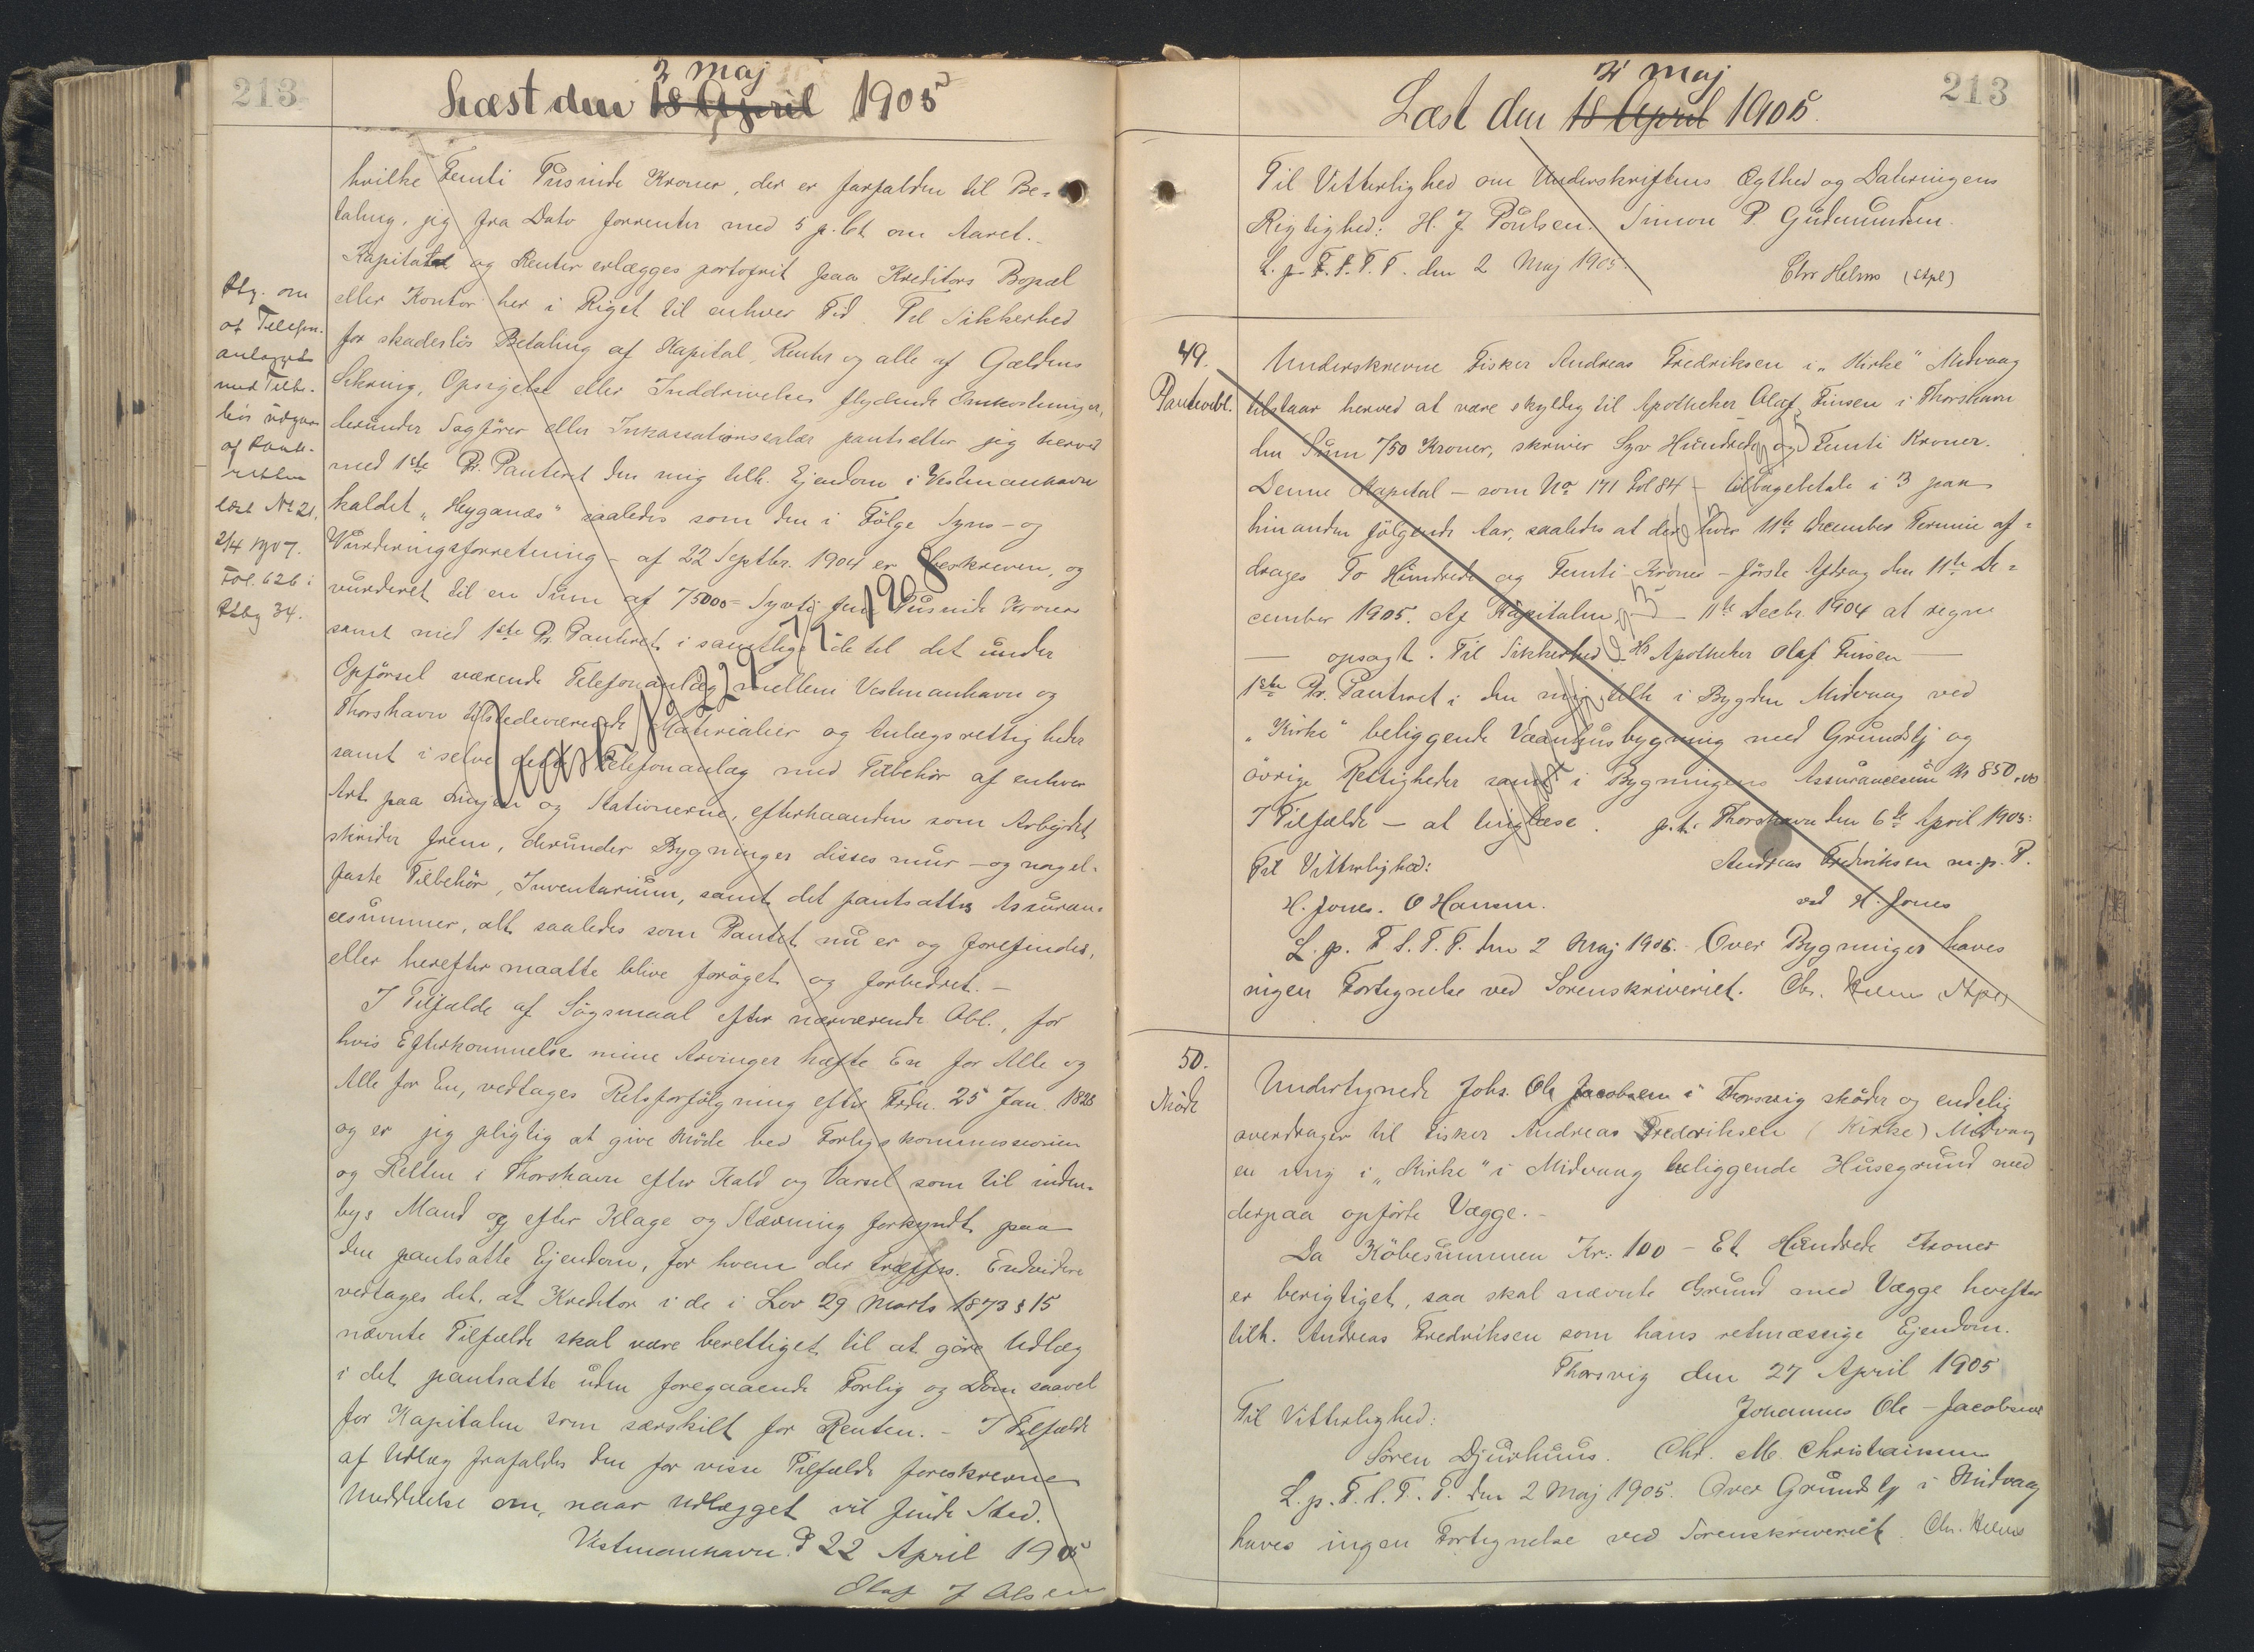 213
2 Maj
Læst den 18 April 1905
hvilke Femti Tusinde Kroner, der er forfalden til Be-
taling, jeg fra Dato forrenter med 5 p. Ct om Aaret.-
Kapitalen og Renter erlægges portofrit paa Kreditors Bopæl
eller Kontor her i Riget til enhver Tid. Til Sikkerhed
for skadeslös Betaling af Kapital, Renter og alle af Gældens
Sikring, Opsigelse eller Inddrivelses flydende Omkostninger,
derunder Sagförer eller Inkassationssalær pantsætter jeg herved
med 1ste Pr. Panteret den mig tilh. Ejendom i Vestmanhavn
kaldet "Heyganæs" saaledes som den i Fölge Syns- og
Vurderingsforretning - af 22 Septbr. 1904 er beskreven, og
vurderet til en Sum af 75000 = Syvti fem Tusinde Kroner
samt med 1ste Pr. Panteret i samtlige de til det under
Opförsel værende Telefonanlæg mellem Vestmanhavn og
Thorshavn tilstedeværende Materialier og Anlægsrettigheder
samt i selve dette Telefonanlæg med Tilbehör af enhver
Art paa Linjen og Stationerne, efterhaanden som Arbejdet
skrider frem, derunder Bygninger disses mur- og nagel-
faste Tilbehör, Inventarium, samt det pantsattes Assuran-
cesummer, alt saaledes som Pantet nu er og forefindes,
eller herefter maatte blive foröget og forbedret.-
I Tilfælde af Sögsmaal efter nærværende Obl., for
hvis Efterkommelse mine Arvinger hæfte En for Alle og
Alle for En, vedtages Retsforfölgning efter Frdn. 25 Jan. 1828
og er jeg pligtig at give Möde ved Forligskommissionen
og Retten i Thorshavn efter Kald og Varsel som til inden-
bys Mand og efter Klage og Stævning forkyndt paa
den pantsatte Ejendom, for hvem der træffes. Endvidere
vedtages det, at Kreditor i de i Lov 29 Marts 1873 § 15
nævnte Tilfælde skal være berettiget til at göre Udlæg
i det pantsatte uden foregaaende Forlig og Dom saavel
for Kapitalen som særskilt for Renten.- I Tilfælde
af Udlæg frafaldes den for visse Tilfælde foreskrevne
Meddelelse om, naar Udlægget vil finde Sted.
Vestmanhavn d 22 April 1905
Olaf J Olsen
om
at Telefon-
anlægget
med Tilbe-
hör udgaar
af Pante-
retten
læst No 21.
2/4 1907.
Fol. 626 i
34.
213
2 Maj
Læst den 18 April 1905.
Til Vitterlighed om Underskriftens Ægthed og Dateringens
Rigtighed: H. J. Poulsen. Simon P. Gudmundsen.
L. p. F. S. T. T. den 2 Maj 1905.
Chr Helms (Stpl)
49.
Panteobl.
Underskrevne Fisker Andreas Fredriksen i "Kirke" Midvaag
tilstaar herved at være skyldig til Apotheker Olaf Finsen i Thorshavn
den Sum 750 Kroner, skriver Syv Hundrede og Femti Kroner.
Denne Kapital - som No 171 Fol 84 - tilbagebetale i 3 paa
hinanden fölgende Aar, saaledes at der hver 11te December Termin af-
drages To Hundrede og Femti Kroner - förste Afdrag den 11te De-
cember 1905. Af Kapitalen - 11te Decbr. 1904 at regne
- opsagt. Til Sikkerhed - Hr Apotheker Olaf Finsen -
1ste Pr. Panteret i den mig tilh i Bygden Midvaag ved
"Kirke" beliggende Vaanhusbygning med Grundstj og
övrige Rettigheder samt i Bygningens Assurancesum Kr 850,00
I Tilfælde - at tinglæse. p.t. Thorshavn den 6te April 1905:
Andreas Fredriksen m.p.P.
Til Vitterlighed:
ved H. Jones
H. Jones. O Hansen.
L. p. F. S. T. T. den 2 Maj 1905. Over Bygninger haves
ingen Fortegnelse ved Sorenskriveriet. Chr. Helms (Stpl)
50.
Sköde
Undertegnede Johs. Ole Jacobsen i Thorsvig sköder og endelig
overdrager til Fisker Andreas Fredriksen (Kirke) Midvaag
en mig i "Kirke" i Midvaag beliggende Husegrund med
derpaa opförte Vægge.-
Da Köbesummen Kr: 100 - Et Hundrede Kroner
er berigtiget, saa skal nævnte Grund med Vægge herefter
tilh. Andreas Fredriksen som hans retmæssige Ejendom.
Thorsvig den 27 April 1905
Johannes Ole - Jacobsen
Til Vitterlighed:
Sören Djurhuus. Chr. M. Christiansen
L. p. F. S. T. T. den 2 Maj 1905. Over Grundstj i Midvaag
haves ingen Fortegnelse ved Sorenskriveriet. Chr. Helms